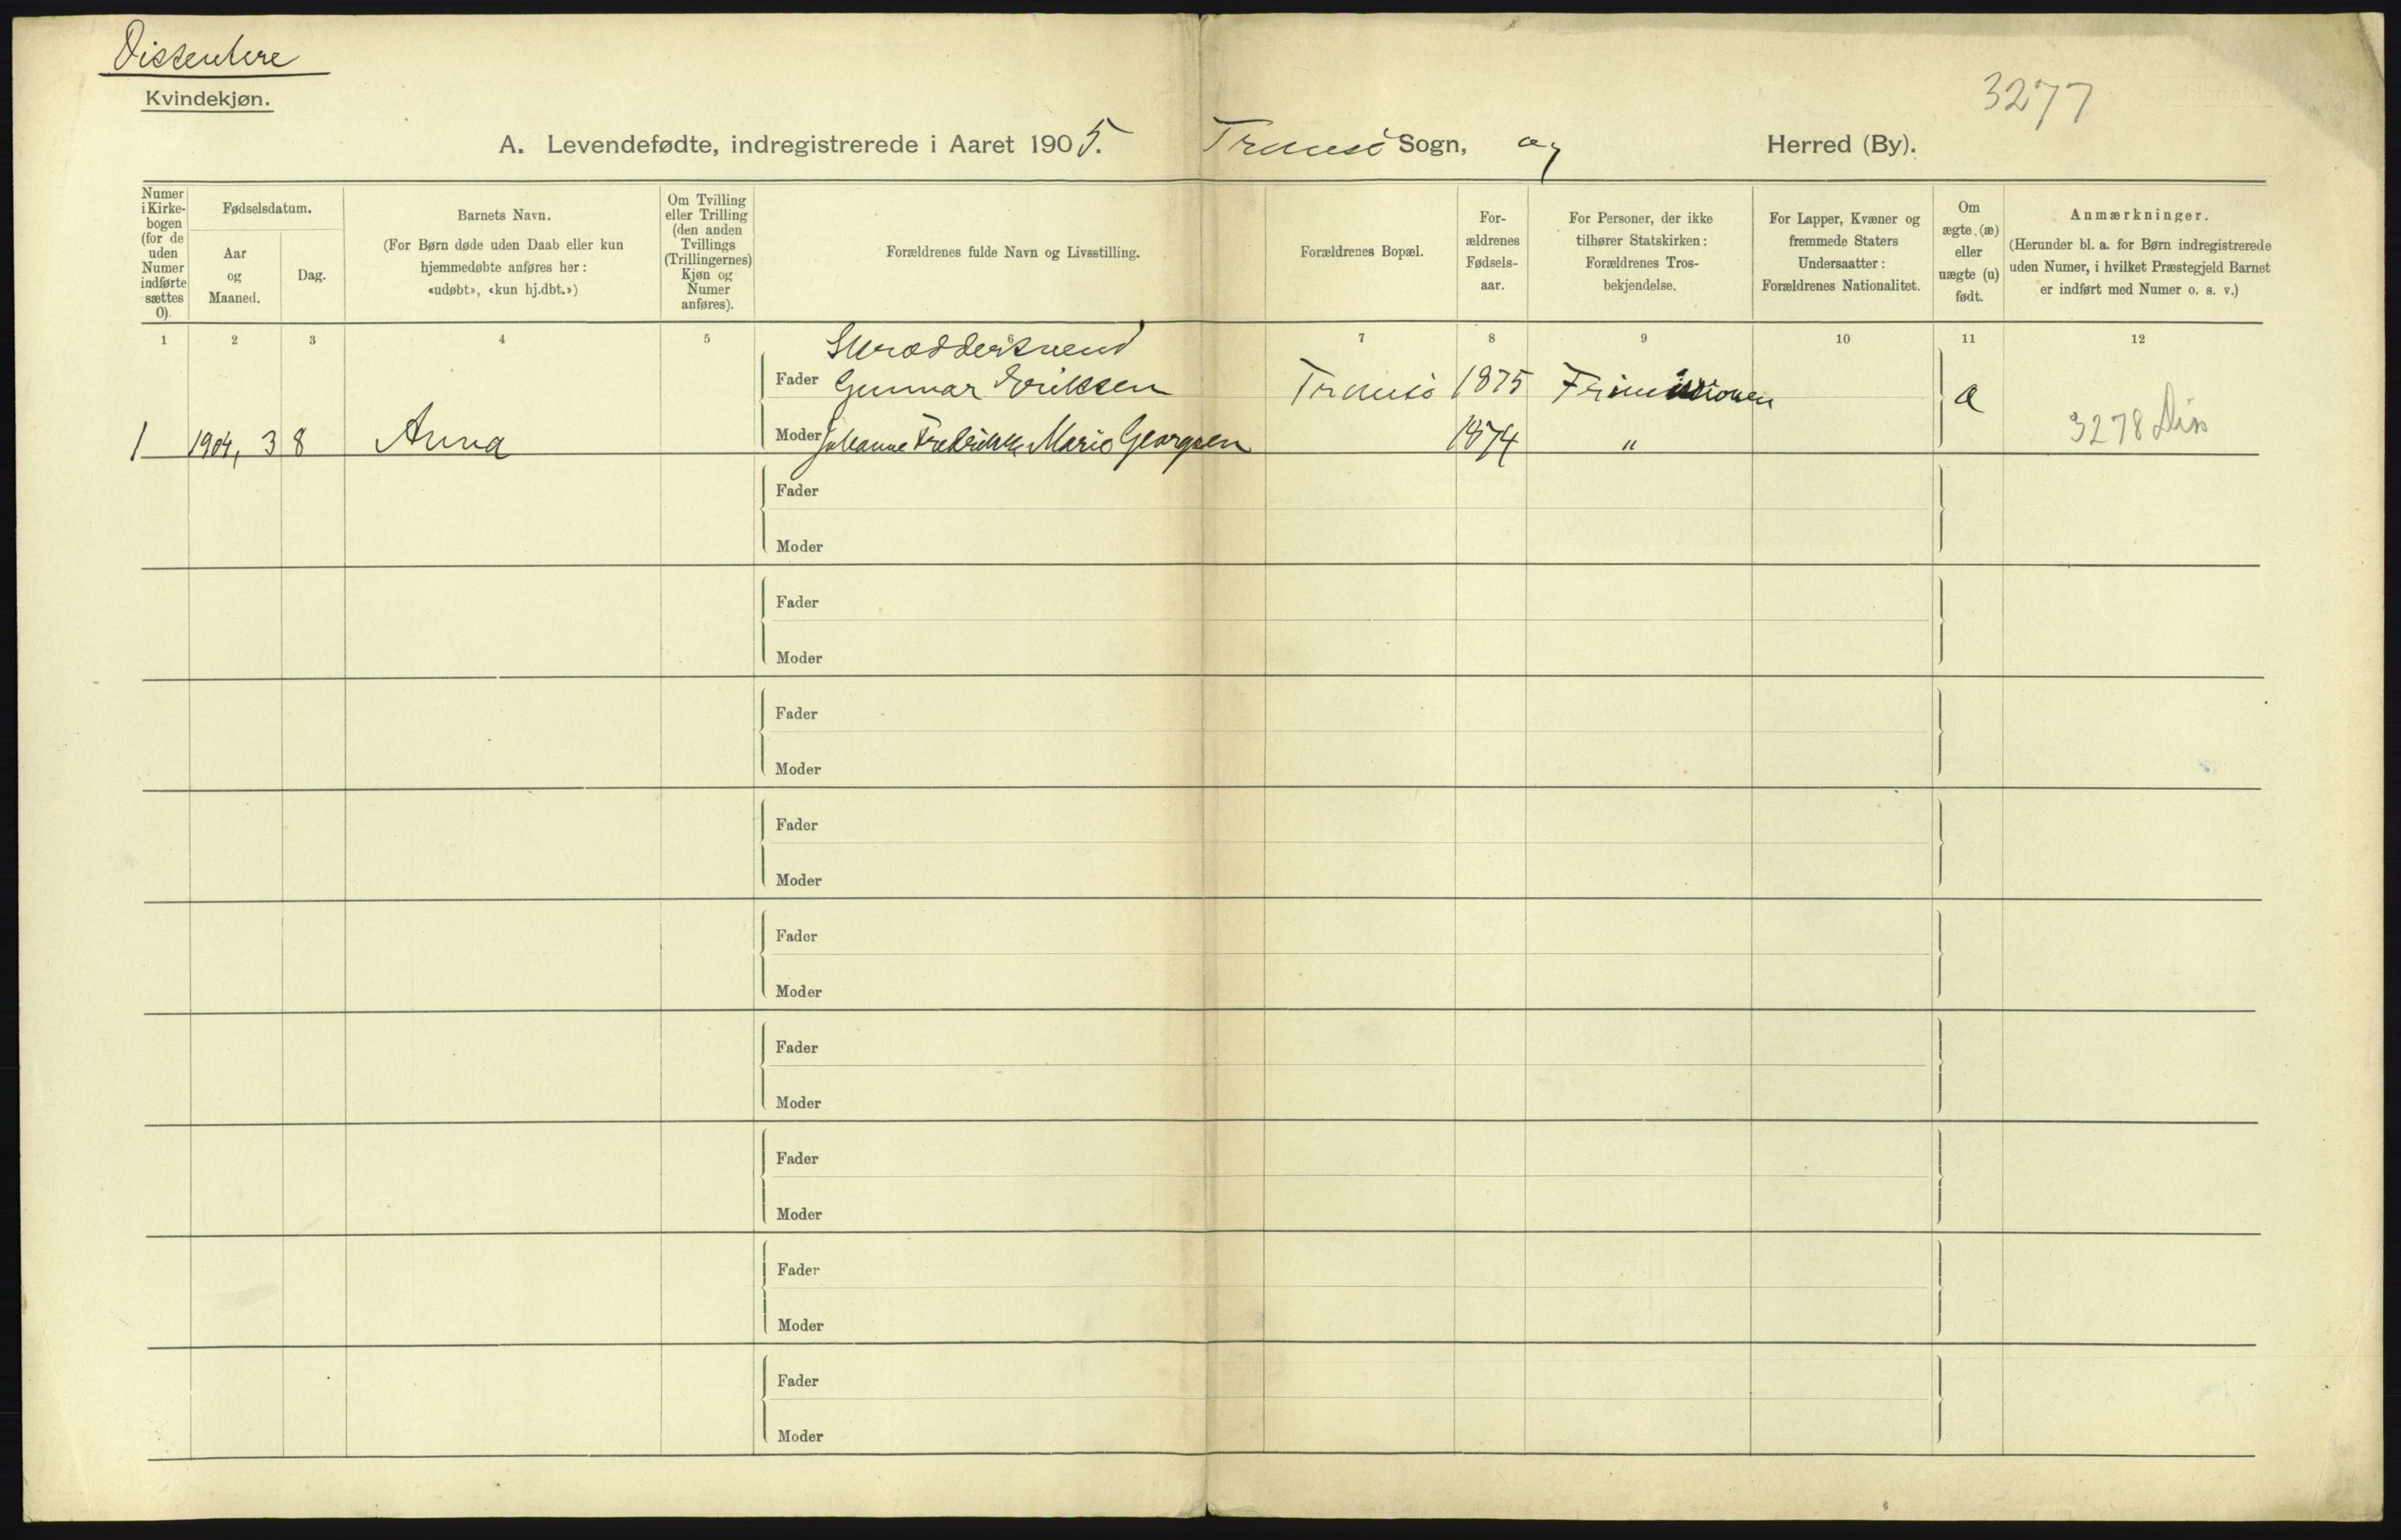 Dissentere
Kvindekjøn.
3277
A. Levendefødte, indregistrerede i Aaret 1905. Tromsö Sogn, og Herred (By).
Numer i Kirke-bogen (for de uden Numer indførte sættes 0).
Fødselsdatum.
Aar og Maaned.
Dag.
Barnets Navn.
(For Børn døde uden Daab eller kun hjemmedøbte anføres her: «udøbt», «kun hj.dbt.»)
Om Tvilling eller Trilling (den anden Tvillings (Trillingernes) Kjøn og Numer anføres).
Forældrenes fulde Navn og Livsstilling.
Forældrenes Bopæl.
For-ældrenes Fødsels-aar.
For Personer, der ikke tilhører Statskirken: Forældrenes Tros-bekjendelse.
For Lapper, Kvæner og fremmede Staters Undersaatter: Forældrenes Nationalitet.
Om ægte (æ) eller uægte (u) født.
Anmærkninger.
(Herunder bl. a. for Børn indregistrerede uden Numer, i hvilket Præstegjeld Barnet er indført med Numer o. s. v.)
1 2 3 4 5 6 7 8 9 10 11 12
Skræddersvend
Fader Gunnar Eriksen Tromsö 1875 Frimissionen æ
1 1904, 3 8 Anna Moder Johanne Fredrikke Marie Georgsen 1874 " 3278 Diss
Fader
Moder
Fader
Moder
Fader
Moder
Fader
Moder
Fader
Moder
Fader
Moder
Fader
Moder
Fader
Moder
Fader
Moder